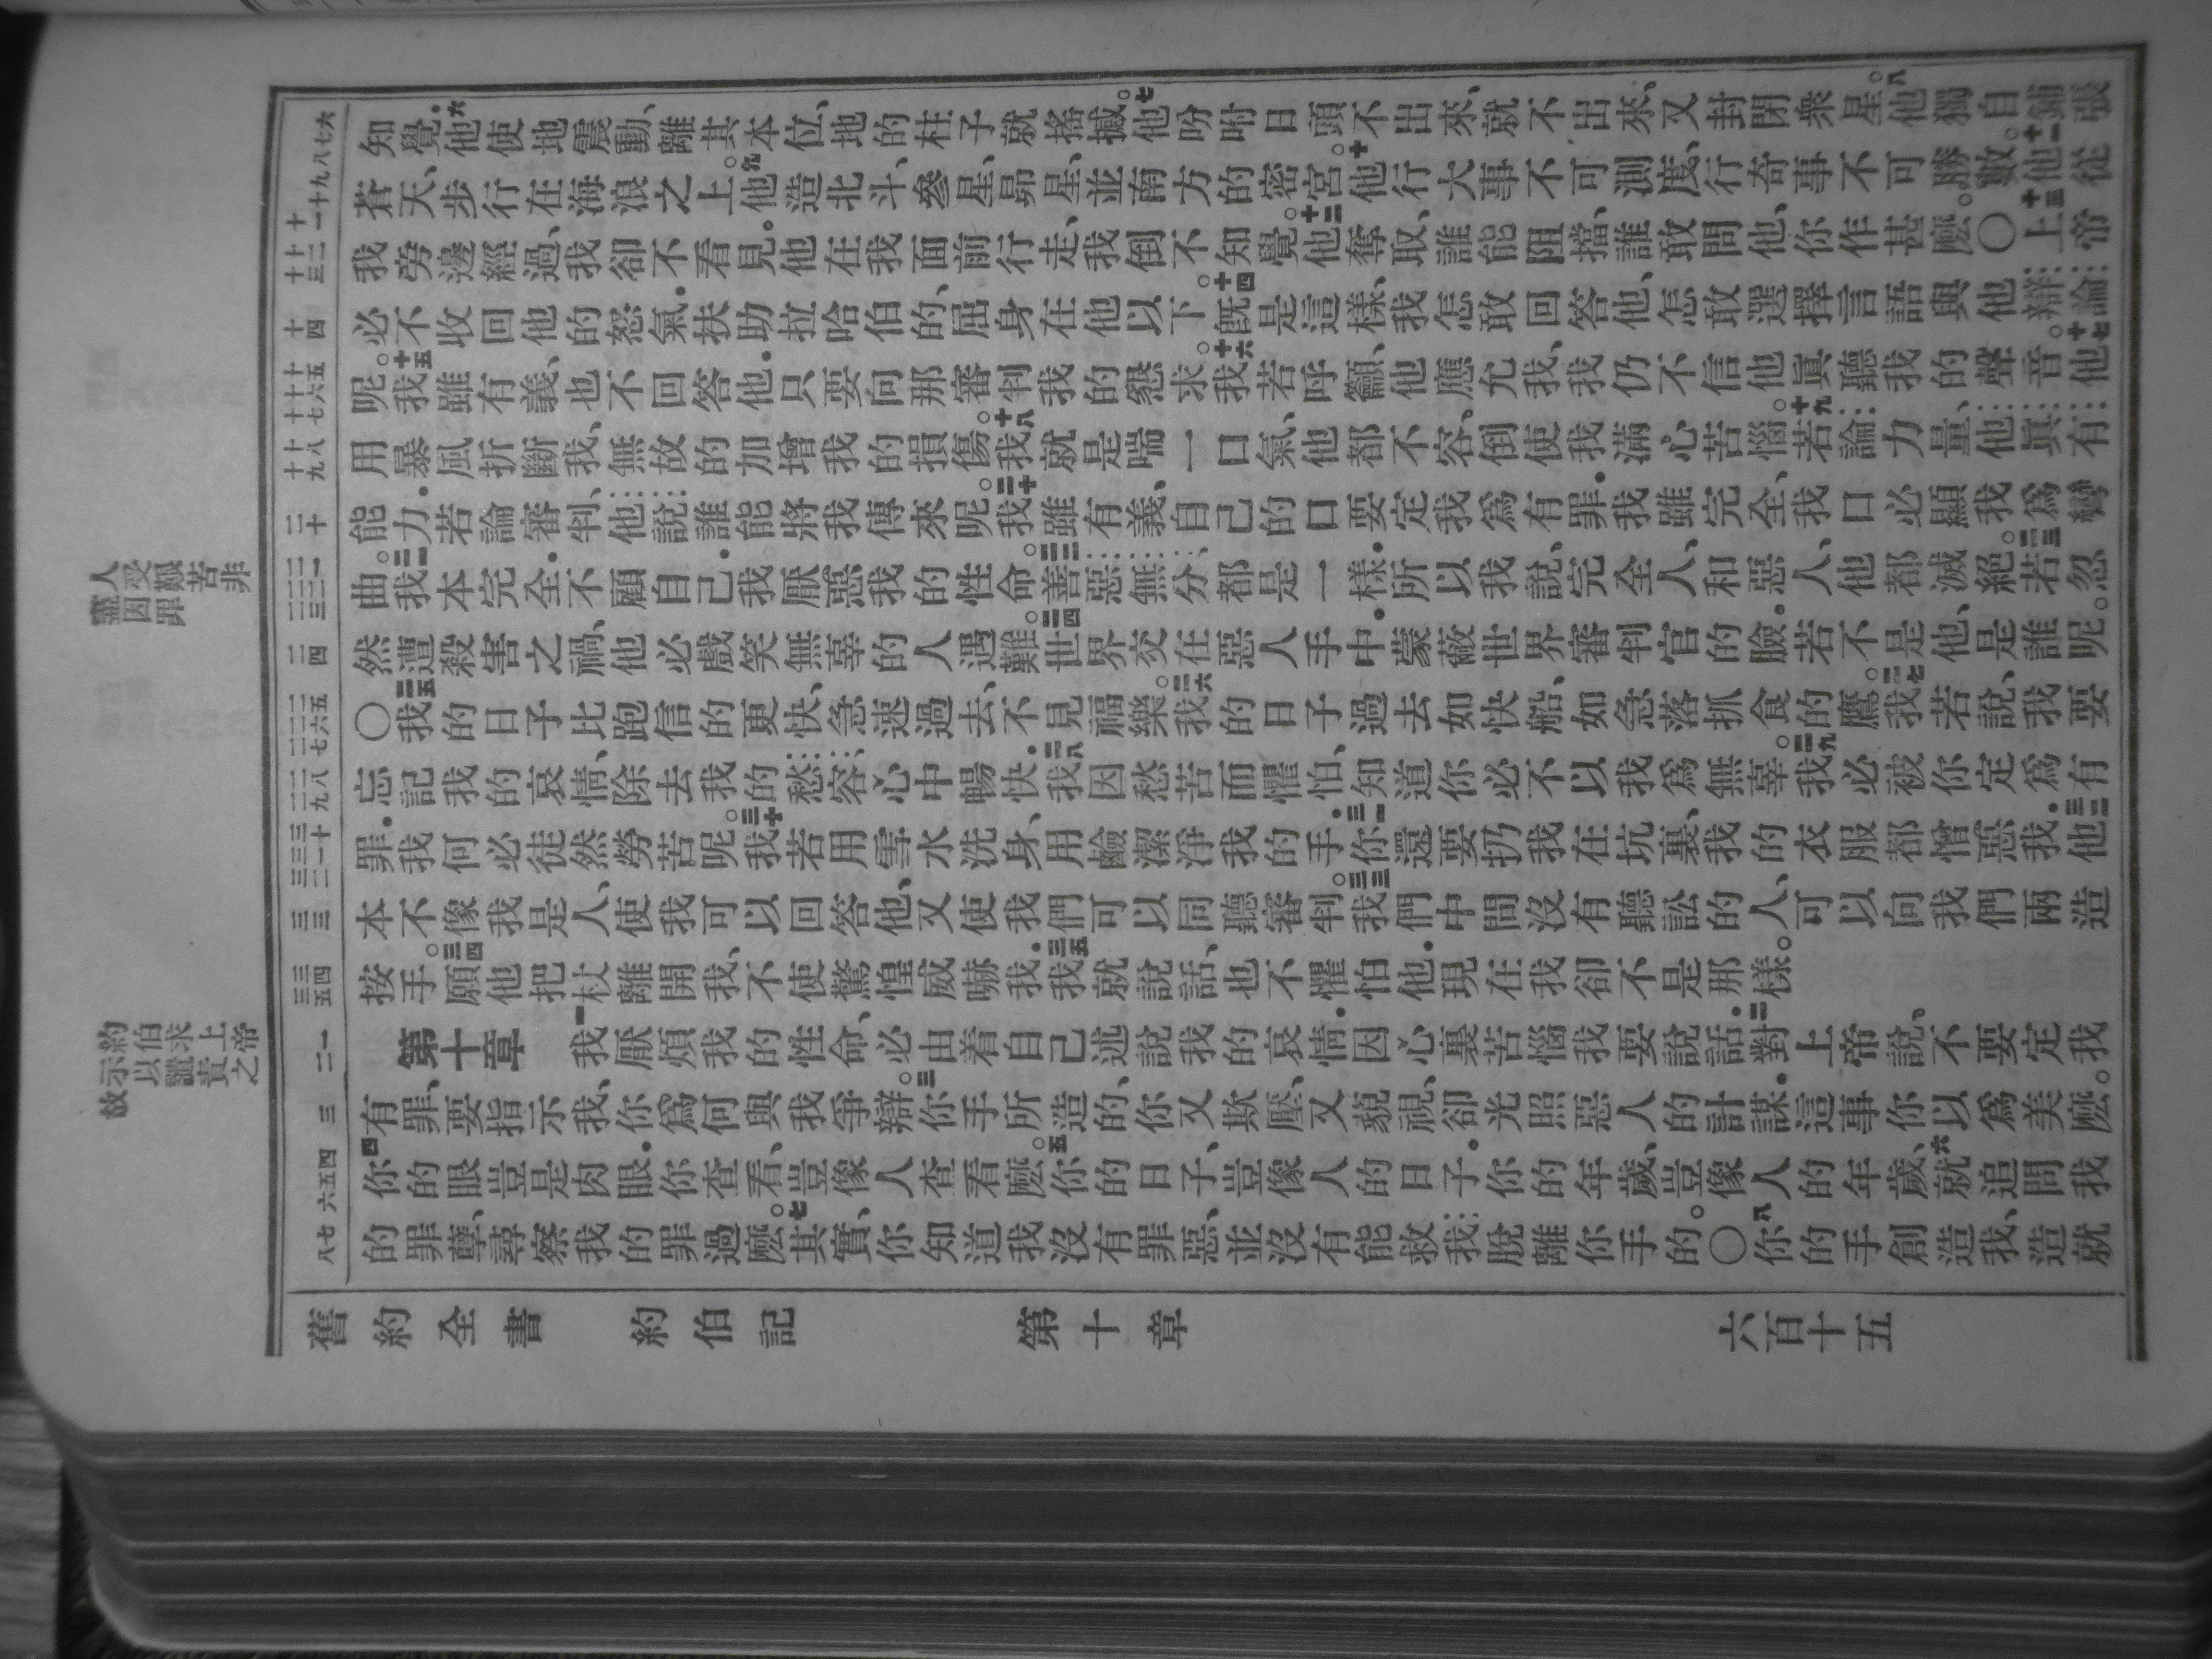 知覺．六他使地震動、離其本位、地的柱子就搖撼。七他吩咐日頭不出來、就不出來、又封閉衆星。八他獨自鋪張
蒼天、步行在海浪之上。九他造北斗、參星、昴星、並南方的密宮。十他行大事不可測度、行奇事不可勝數。十一他從
我旁邊經過、我卻不看見。他在我面前行走、我倒不知覺。十二他奪取、誰能阻擋、誰敢問他、你作甚麼。〇十三上帝
必不收回他的怒氣．扶助拉哈伯的、屈身在他以下。十四既是這樣、我怎敢回答他、怎敢選擇言語與他辯論
呢。十五我雖有義、也不回答他．只要向那審判我的懇求。十六我若呼籲、他應允我、我仍不信他眞聽我的聲音。十七他
用暴風折斷我、無故的加增我的損傷。十八我就是喘一口氣、他都不容、倒使我滿心苦惱。十九若論力量、他眞有
能力．若論審判、他說、誰能將我傳來呢。二十我雖有義、自己的口要定我爲有罪．我雖完全、我口必顯我爲彎
曲。二一我本完全．不顧自己．我厭惡我的性命。二二善惡無分、都是一樣．所以我說、完全人、和惡人、他都滅絕。二三若忽
然遭殺害之禍、他必戲笑無辜的人遇難。二四世界交在惡人手中．蒙蔽世界審判官的臉．若不是他、是誰呢。
〇二五我的日子比跑信的更快、急速過去、不見福樂。二六我的日子過去如快船、如急落抓食的鷹。二七我若說、我要
忘記我的哀情、除去我的愁容、心中暢快．二八我因愁苦而懼怕、知道你必不以我爲無辜。二九我必被你定爲有
罪．我何必徒然勞苦呢。三十我若用雪水洗身、用鹼潔淨我的手．三一你還要扔我在坑裏、我的衣服都憎惡我．三二他
本不像我是人、使我可以回答他、又使我們可以同聽審判。三三我們中間沒有聽訟的人、可以向我們兩造
按手。三四願他把杖離開我、不使驚惶威嚇我．三五我就說話、也不懼怕他．現在我卻不是那樣。
第十章　一我厭煩我的性命、必由着自己述說我的哀情．因心裏苦惱、我要說話．二對上帝說、不要定我
有罪、要指示我、你爲何與我爭辯。三你手所造的、你又欺壓、又藐視、卻光照惡人的計謀．這事你以爲美麼。
四你的眼豈是肉眼．你查看、豈像人查看麼。五你的日子、豈像人的日子．你的年歲、豈像人的年歲、六就追問我
的罪孽、尋察我的罪過麼。七其實、你知道我沒有罪惡、並沒有能救我脫離你手的。〇八你的手創造我、造就
六
七
八
九
十
十一
十二
十三
十四
十五
十六
十七
十八
十九
二十
二一
二二
二三
二四
二五
二六
二七
二八
二九
三十
三一
三二
三三
三四
三五
一
二
三
四
五
六
七
八
人受艱苦非
盡因罪
約伯求上帝
示以譴責之
故
舊約全書　約伯記　第十章　六百十五